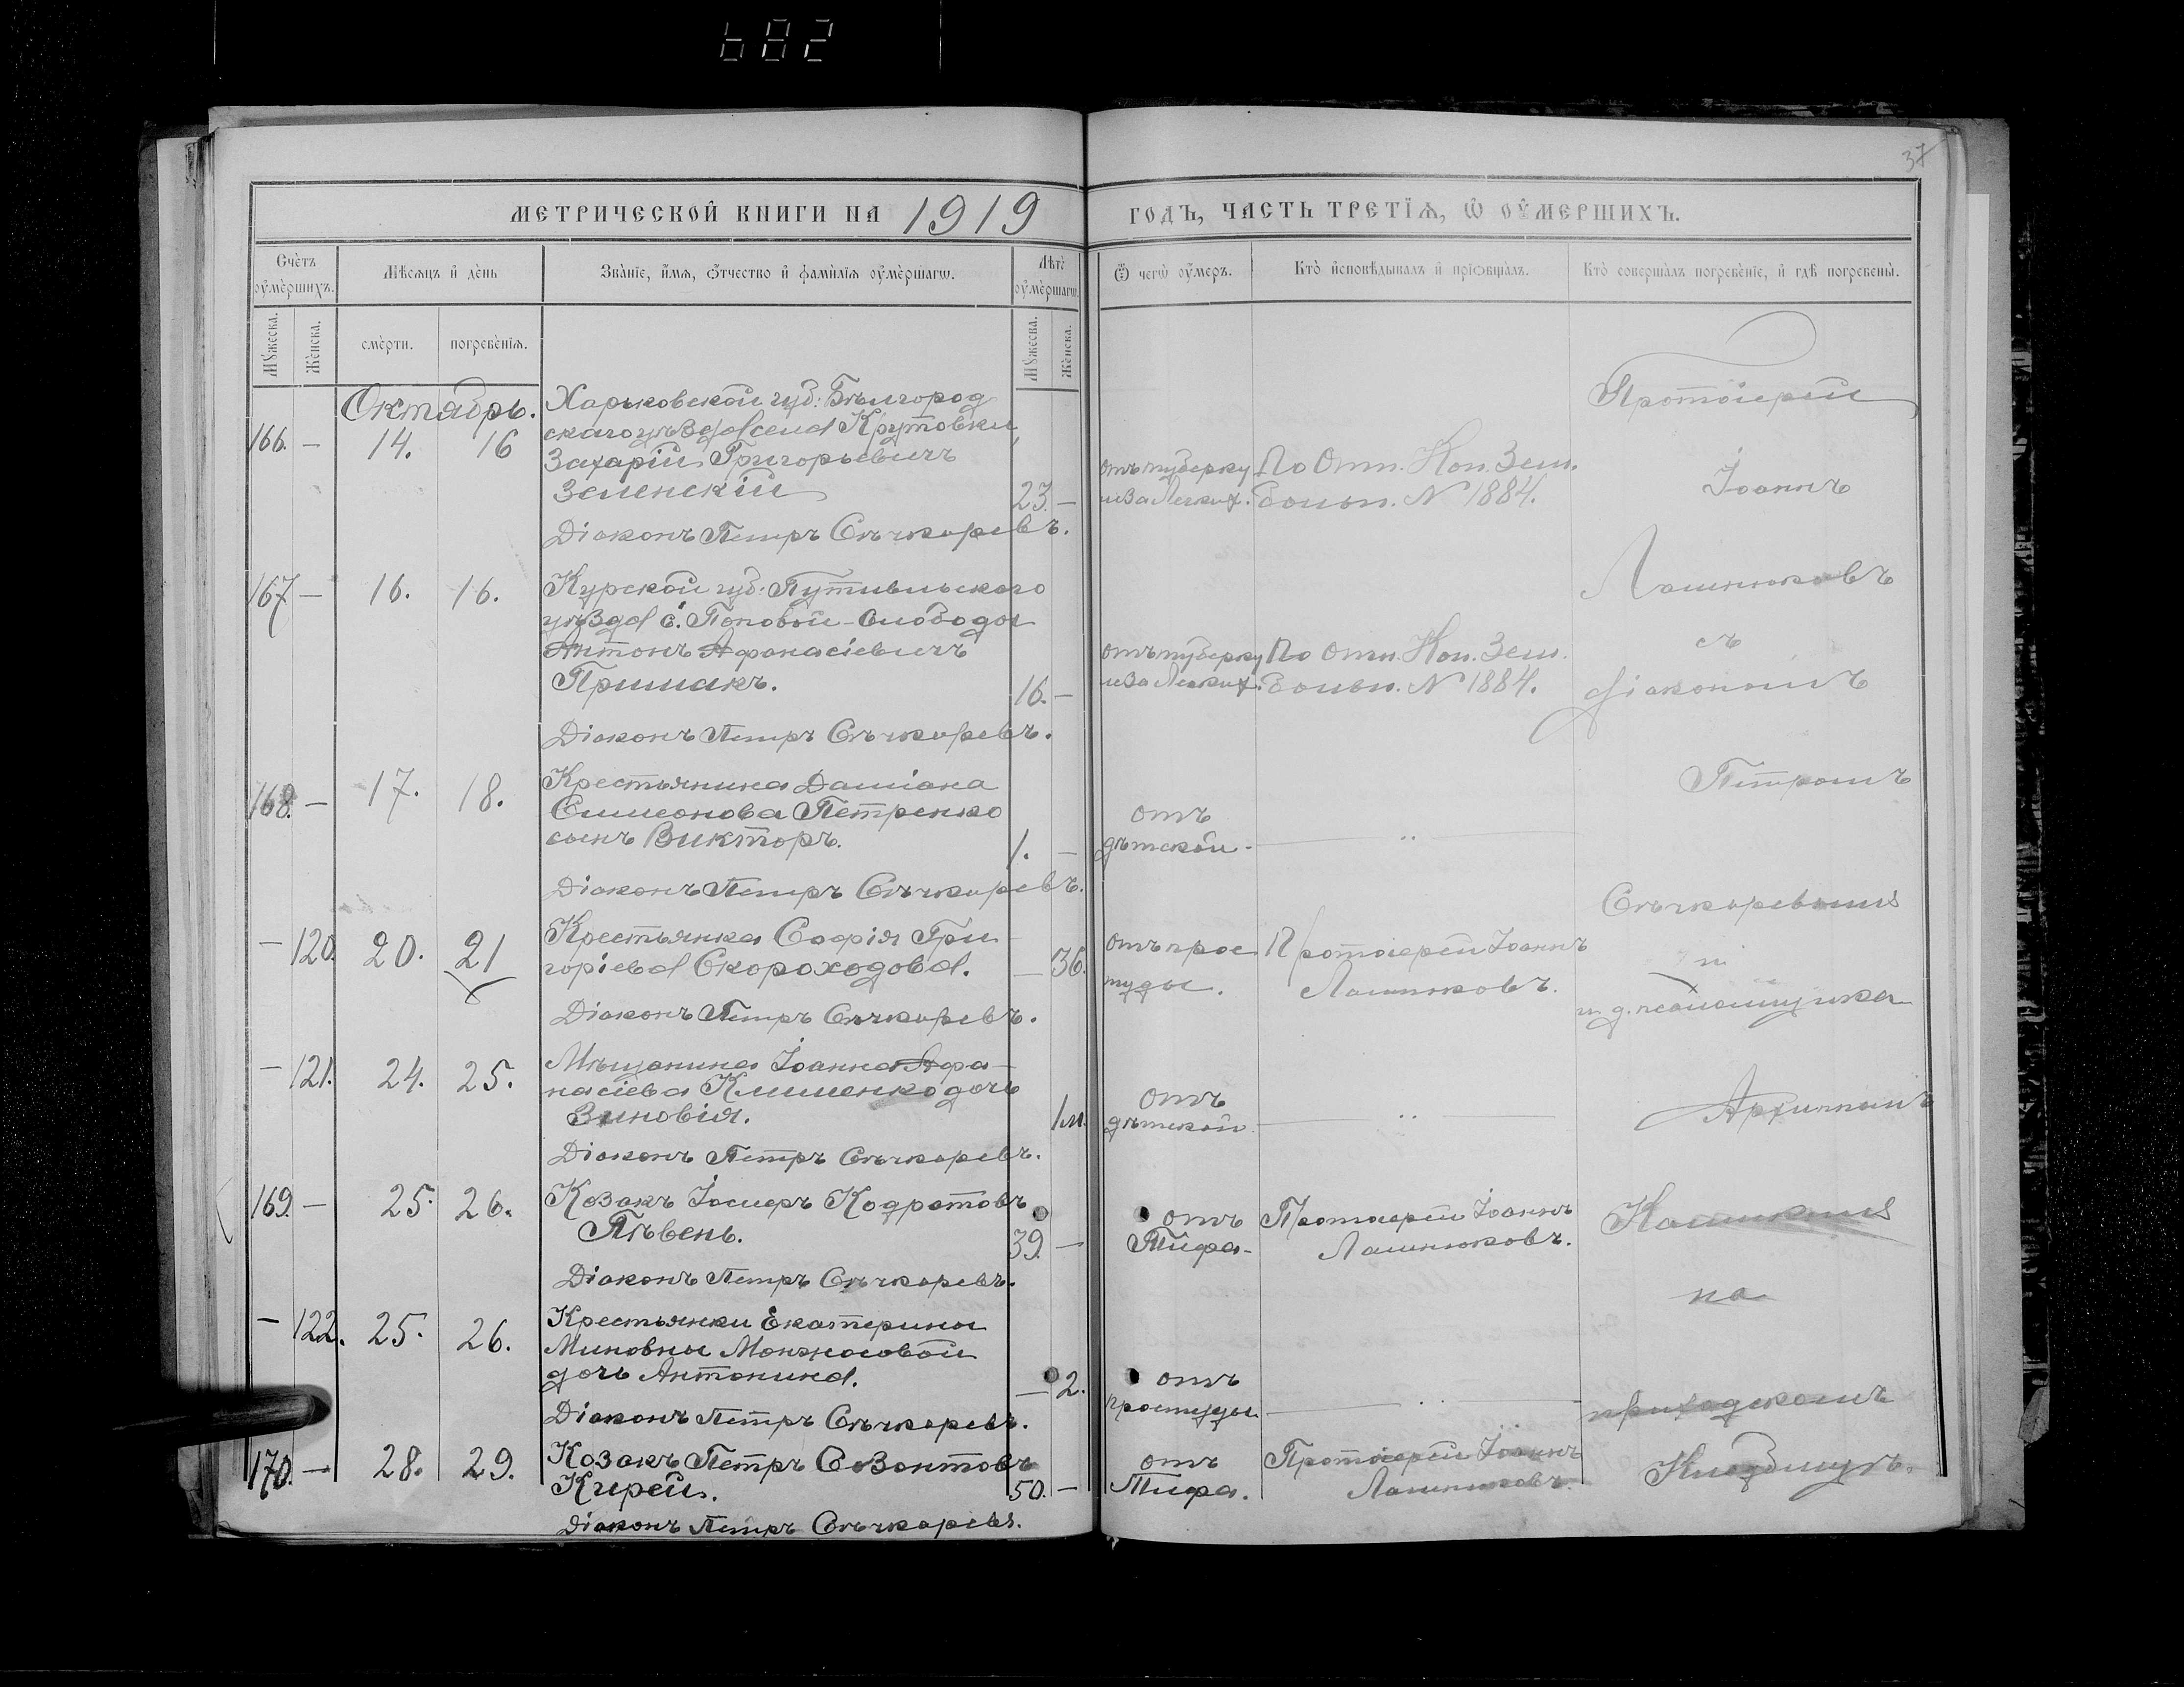 682
37
МЕТРИЧЕСКОЙ КНИГИ НА 1919
ГОДЪ, ЧАСТЬ ТРЕТІѦ, Ѽ ОУМЕРШИХЪ.
Счетъ оумершихъ.
Мѣсяцъ и день
Званіе, имѧ, отчество и фамиліѧ оумершагѡ.
Лѣтѣ оумершагѡ.
Ѿ чегѡ оумеръ.
Кто исповѣдывалъ и пріѡбщалъ.
Кто совершалъ погребеніе, и гдѣ погребены.
Мꙋжеска.
Женска.
смерти.
погребеніѧ.
Мꙋжеска.
Женска.
Октябрь.
166. — 14. 16
Харьковской губ: Бѣлгород
скаго уѣзда села Крутовки
Захарій Григорьевичъ
Зеленскій
23. —
отъ туберку
леза Легких.
По Отн. Кон. Зем.
Больн. № 1884.
Діаконъ Петръ Сѣчкаревъ.
167 — 16. 16.
Курской губ: Путивльскаго
уѣзда с. Поповой-Слободы
Антонъ Афанасіевичъ
Примакъ.
16. —
отъ туберку
леза Легких.
По Отн. Кон. Зем.
Больн. № 1884.
Діаконъ Петръ Сѣчкаревъ.
168. — 17. 18.
Крестьянина Даміана
Симеонова Петренко
сынъ Викторъ.
1. —
отъ
дѣтской.
Діаконъ Петръ Сѣчкаревъ.
— 120. 20. 21
Крестьянка Софія Гри
горіева Скороходова.
— 36.
отъ прос
туды.
Протоіерей Іоаннъ
Лашнюковъ.
Діаконъ Петръ Сѣчкаревъ.
— 121. 24. 25.
Мѣщанина Іоанна Афа-
насіева Клименко дочь
Зиновія.
1м.
отъ
дѣтской.
Діаконъ Петръ Сѣчкаревъ.
169. — 25. 26.
Козакъ Іосифъ Кодратовъ
Пѣвень.
39. —
отъ
Тифа.
Протоіерей Іоаннъ
Лашнюковъ.
Діаконъ Петръ Сѣчкаревъ.
— 122. 25. 26.
Крестьянки Екатерины
Миновны
дочь Антонина.
— 2.
отъ
простуды
Діаконъ Петръ Сѣчкаревъ.
170. — 28. 29.
Козакъ Петръ Созонтовъ
Кирей.
50. —
отъ
Тифа.
Протоіерей Іоаннъ
Лашнюковъ.
Діаконъ Петръ Сѣчкаревъ.
Протоіерей
Іоаннъ
Лашнюковъ
съ
діакономъ
Петромъ
Сѣчкаревымъ
и
и. д. псаломщика
на
приходскомъ
Кладбищѣ.